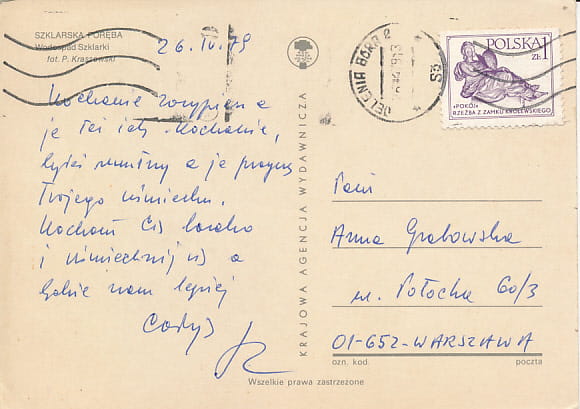 SZKLARSKA PORĘBA
Wodospad Szklarki
fot. P. Kraszewski
26. IV. 79
Kochanie
je Też ich. Kochanie,
byłeś smutny a je pragnę
Twojego uśmiechu.
Kocham Cię bardzo
i uśmiechnij się a
będzie nam lepiej
KRAJOWA AGENCJA WYDAWNICZA
JELENIA GÓRA 2
POLSKA 1
ZŁ
«POKÓJ»
RZEŹBA Z ZAMKU KRÓLEWSKIEGO
Pani
Anna Grabowska
ul. Potocka 60/3
01-652-WARSZAWA
ozn. kod. poczta
Wszelkie prawa zastrzeżone